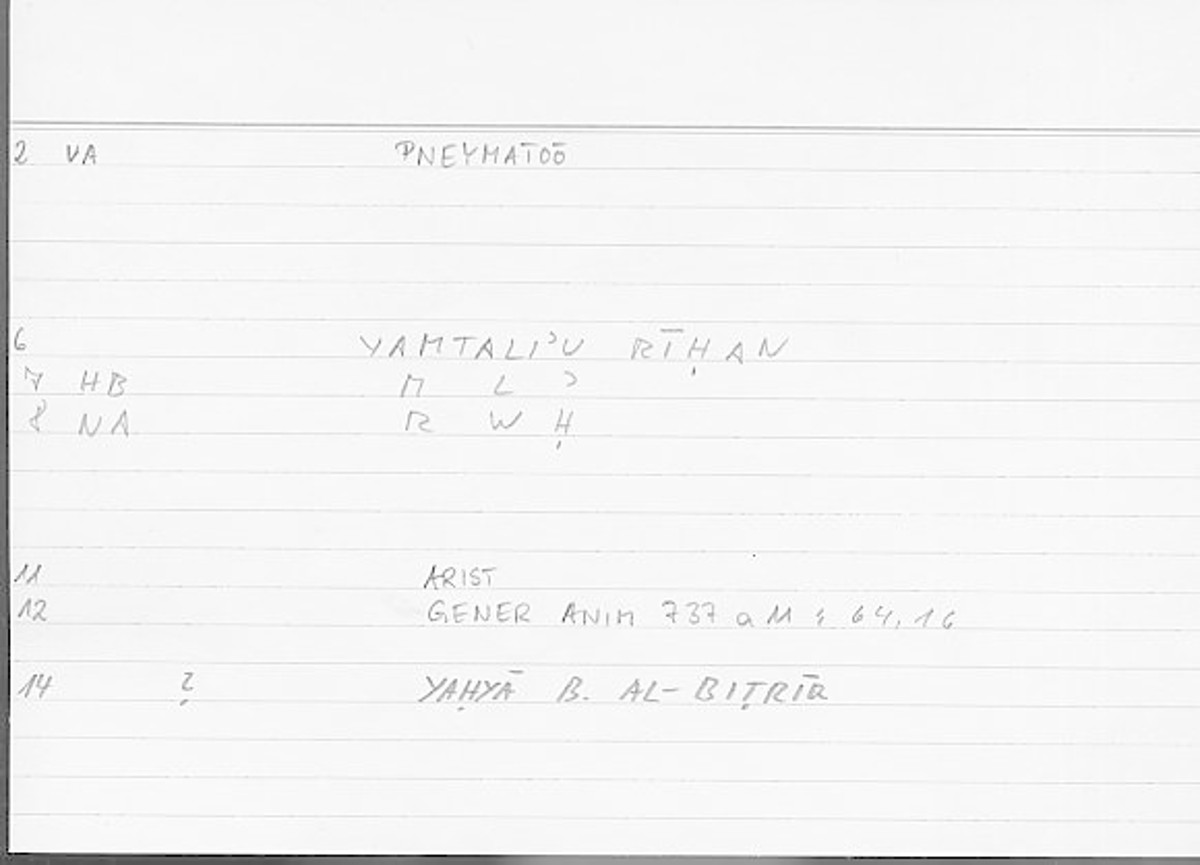 2 VA PNEYMATŌŌ
6 YAMTALI'U RĪḤAN
7 HB M L '
8 NA R W Ḥ
11 ARIST
12 GENER ANIM 737 a 11 : 64,16
14 ? YAḤYĀ B. AL-BIṬRĪQ